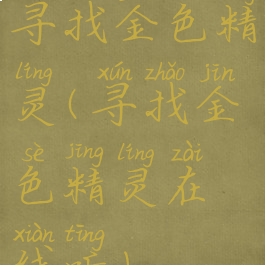 寻找金色精
líng xún zhǎo jīn
灵(寻找金
sè jīng líng zài
色精灵在
xiàn tīng
线听)